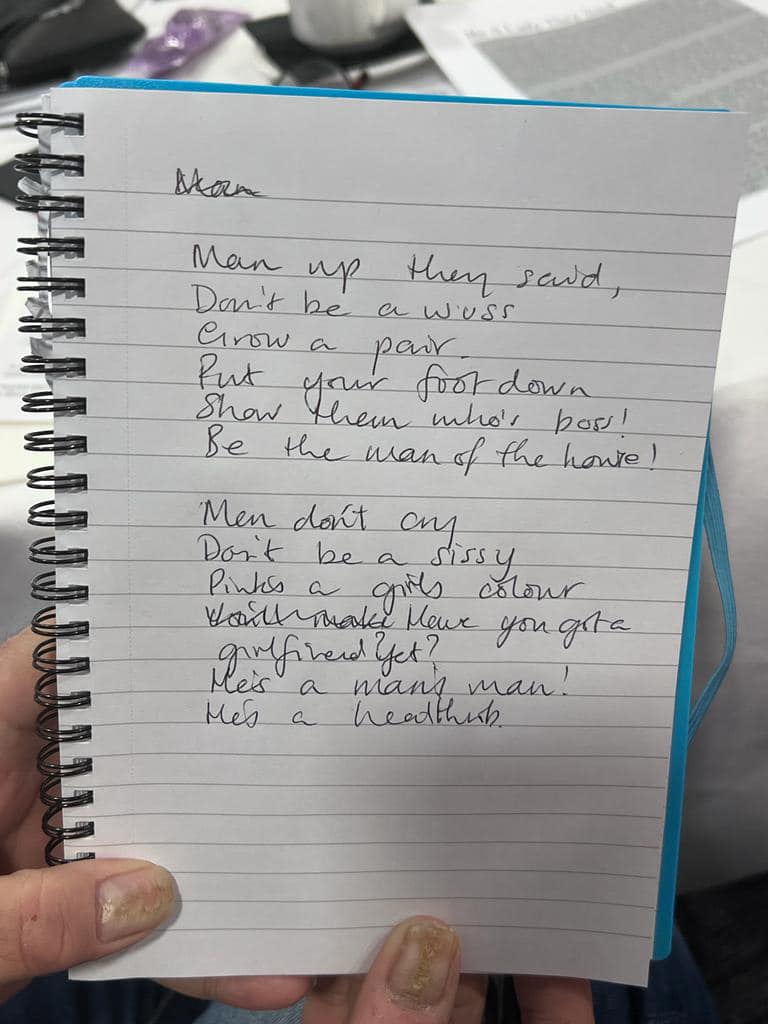 Man
Man up they said,
Don't be a wuss
Grow a pair.
Put your foot down
Show them who's boss!
Be the man of the house!
Men don't cry
Don't be a sissy
Pink's a girls colour
Have you got a
girlfriend? Yet?
He's a man's man!
He's a heartthrob.